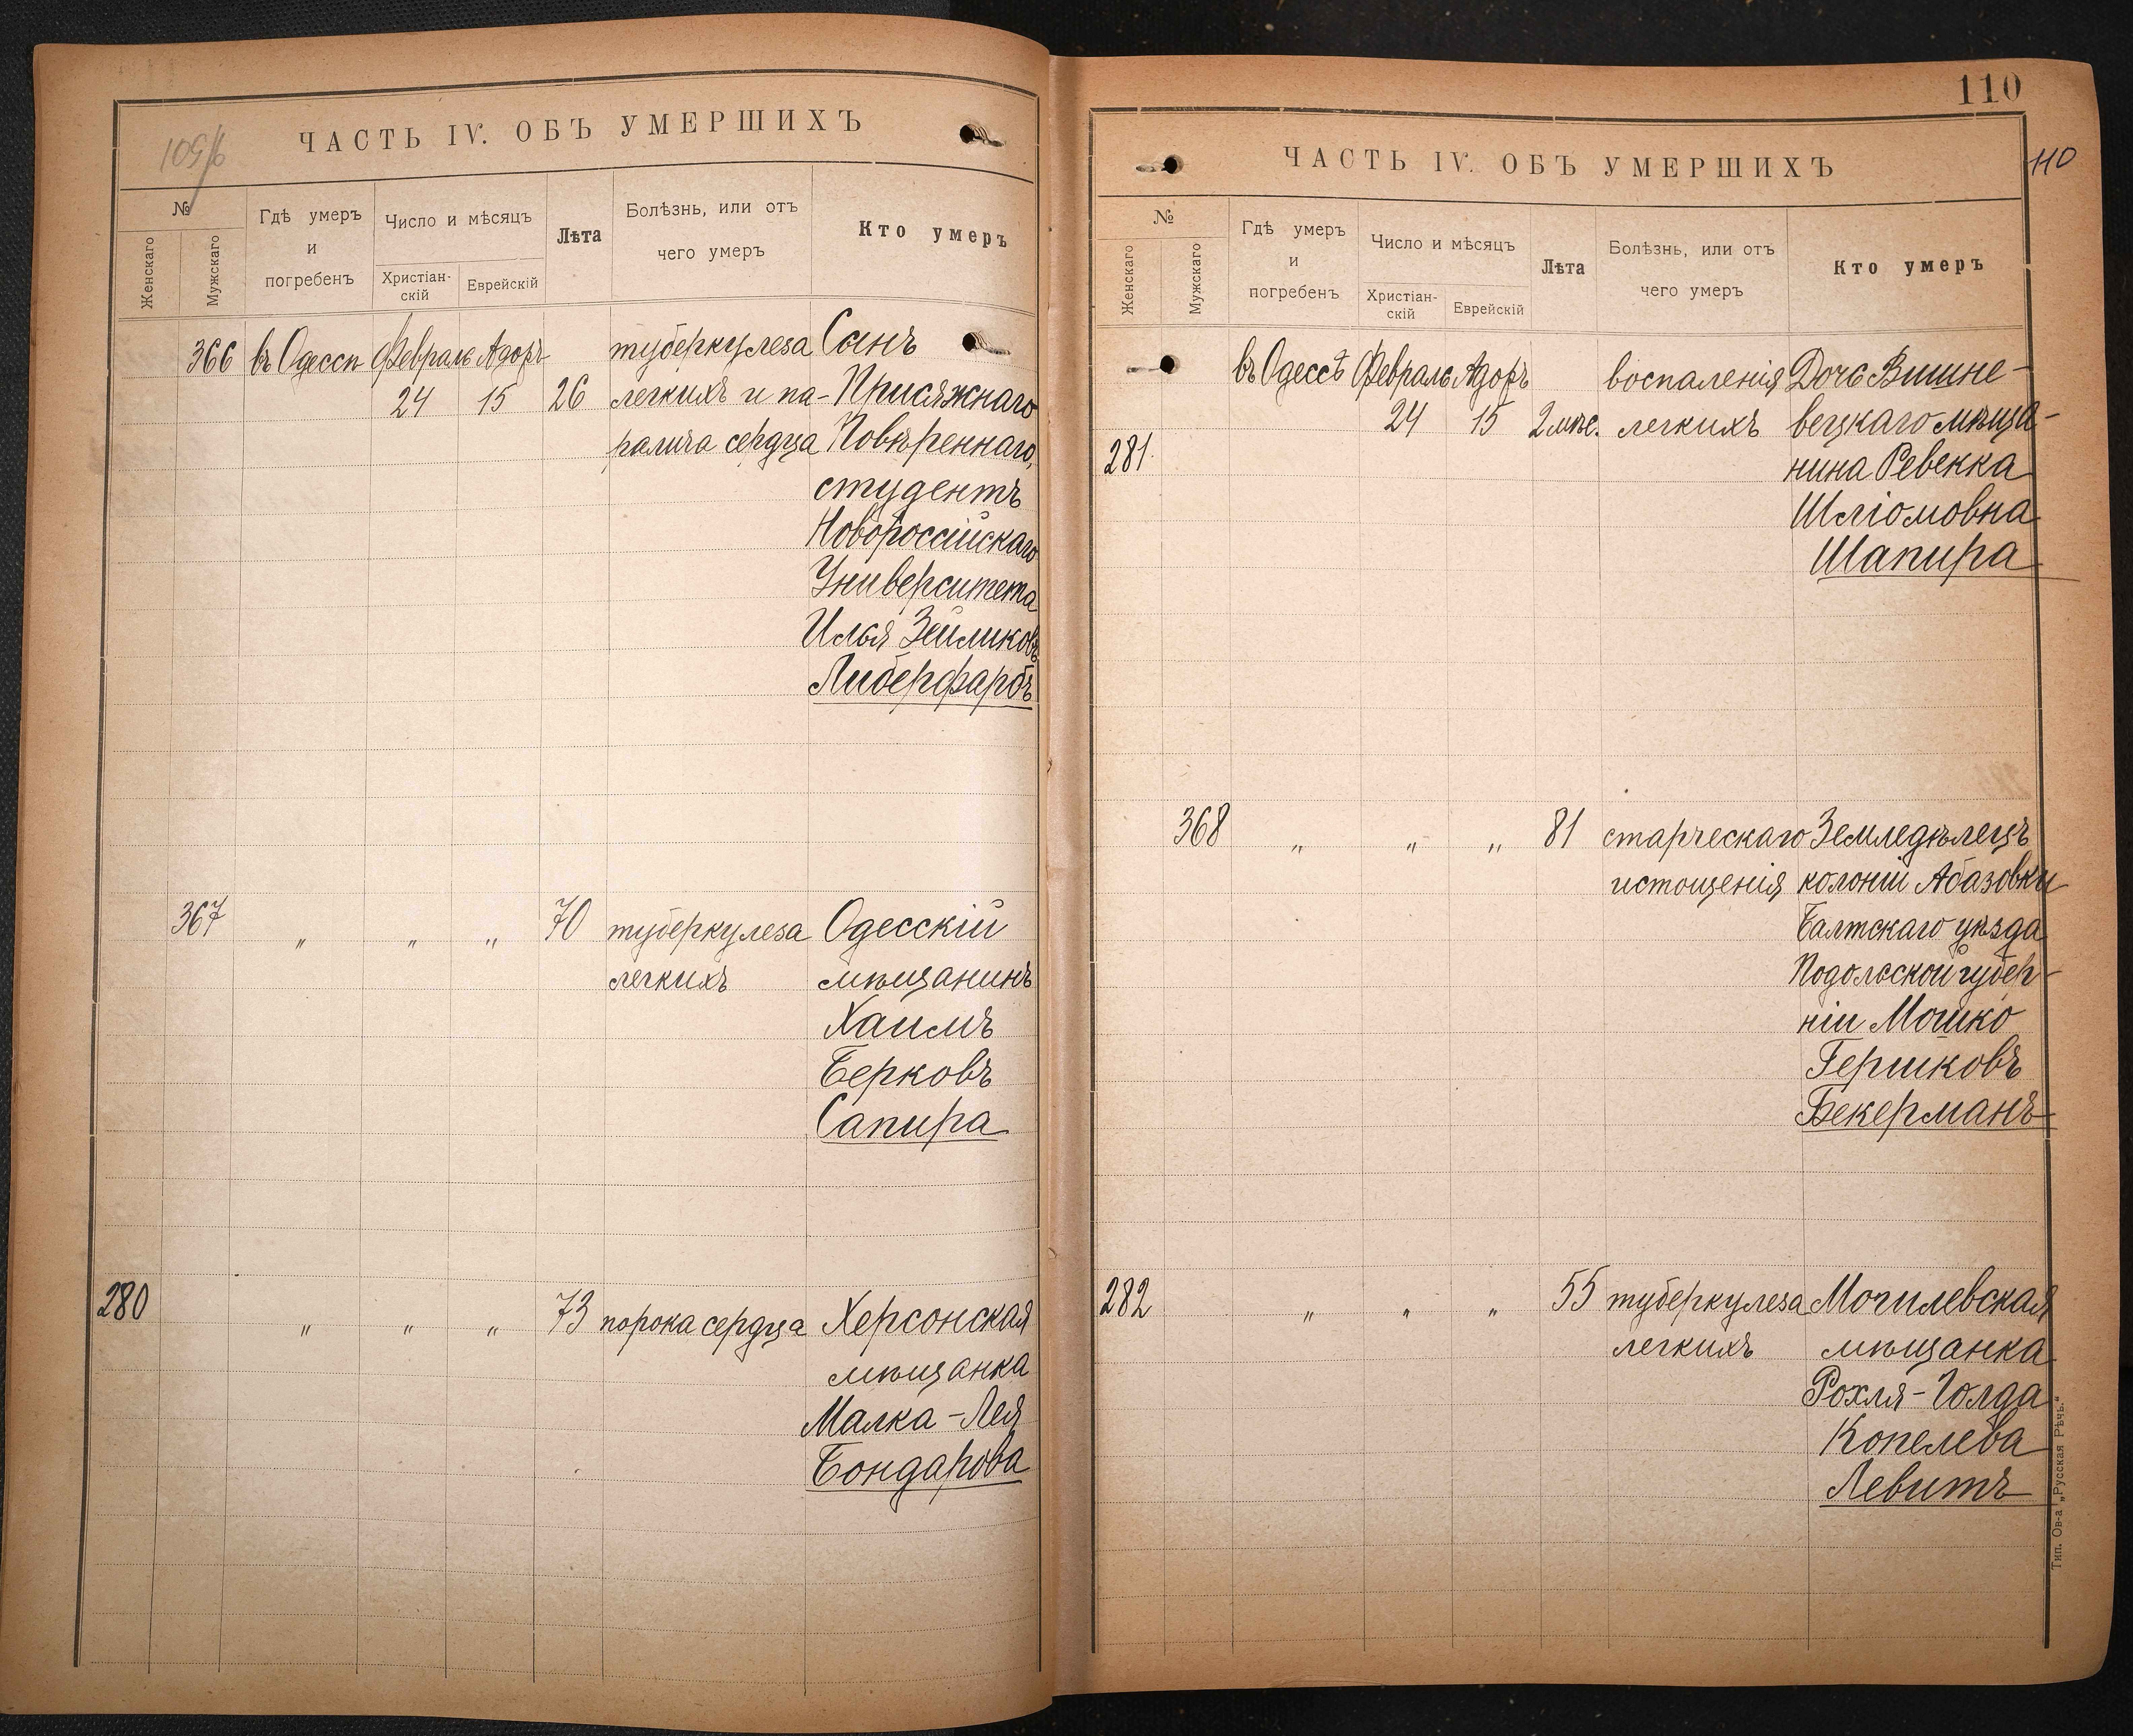 109/б
ЧАСТЬ IV. ОБЪ УМЕРШИХЪ
№
Женскаго
Мужскаго
Гдѣ умеръ
и
погребенъ
Число и мѣсяцъ
Христіан-
скій
Еврейскій
Лѣта
Болѣзнь, или отъ
чего умеръ
Кто умеръ
366 въ Одессѣ Февраль Адоръ туберкулеза Сынъ
24 15 26 легкихъ и па- Присяжнаго
ралича сердца Повѣреннаго,
студентъ
Новороссійскаго
Университета
Илья Зейликовъ
Либерфарбъ
367 „ „ „ 70 туберкулеза Одесскій
легкихъ мѣщанинъ
Хаимъ
Берковъ
Сапира
280 „ „ „ 73 порока сердца Херсонская
мѣщанка
Малка-Лея
Бондарова
110
ЧАСТЬ IV. ОБЪ УМЕРШИХЪ
110
№
Женскаго
Мужскаго
Гдѣ умеръ
и
погребенъ
Число и мѣсяцъ
Христіан-
скій
Еврейскій
Лѣта
Болѣзнь, или отъ
чего умеръ
Кто умеръ
въ Одессѣ Февраль Адоръ воспаленія Дочь Вишне-
24 15 2 мѣс. легкихъ вецкаго мѣща-
281. нина Ревекка
Шліомовна
Шапира
368 „ „ „ 81 старческаго Земледѣлецъ
истощенія колоніи Абазовки
Балтскаго уѣзда
Подольской губер-
ніи Мошко
Гершковъ
Бекерманъ
282 „ „ „ 55 туберкулеза Могилевская
легкихъ мѣщанка
Рохля-Голда
Копелева
Левитъ
Тип. Ов-а „Русская Рѣчь."